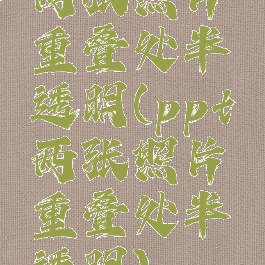 两张照片
重叠处半
透明(ppt
两张照片
重叠处半
透明)